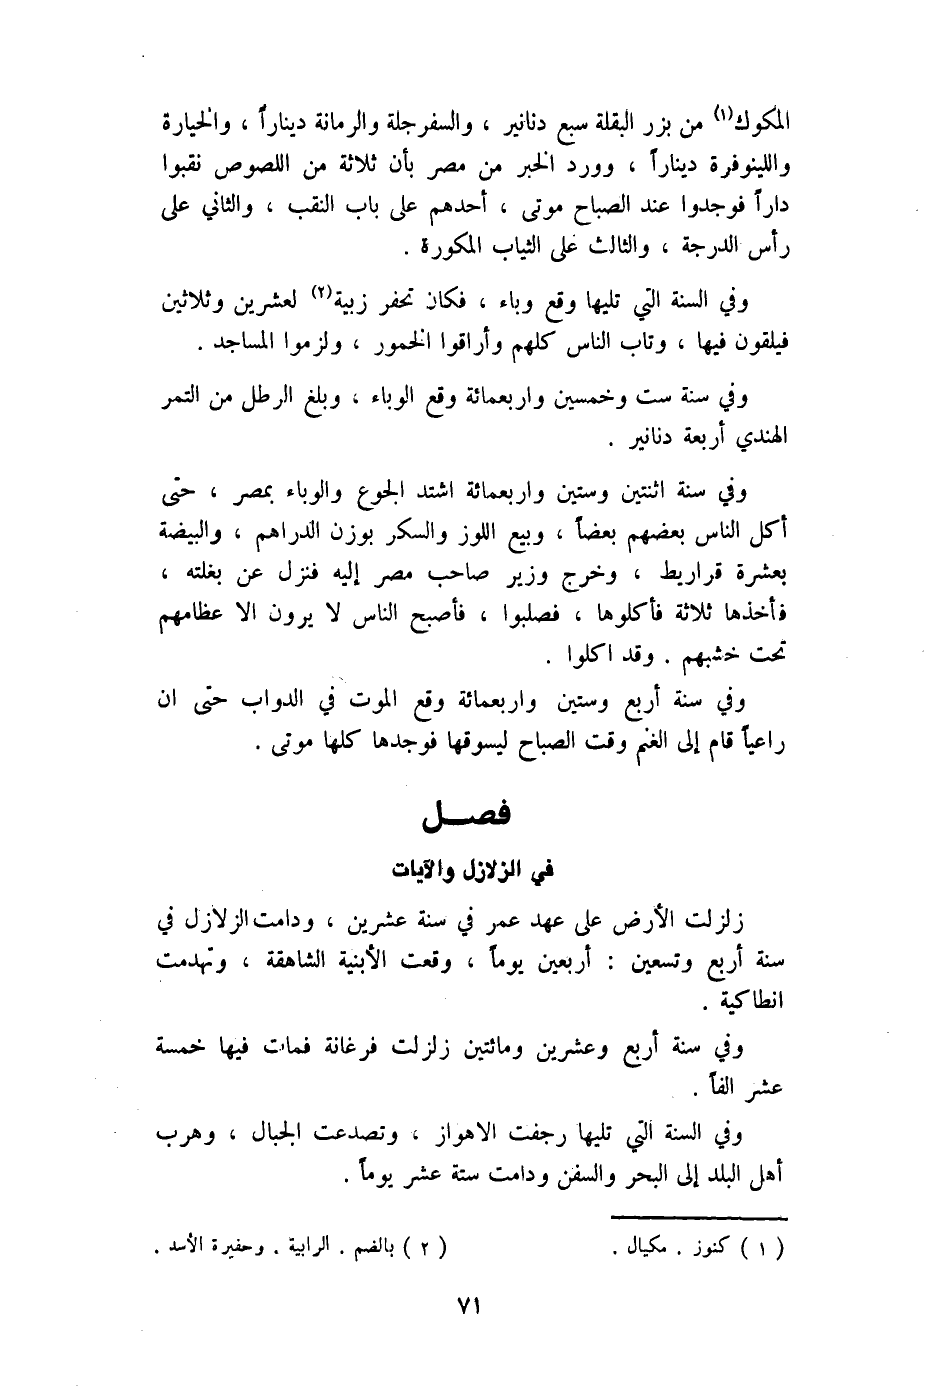 المكوك(١) من بزر البقلة سبع دنانير ، والسفرجلة والرمانة ديناراً ، والخيارة
واللينوفرة ديناراً ، وورد الخبر من مصر بأن ثلاثة من اللصوص نقبوا
داراً فوجدوا عند الصباح موتى ، أحدهم على باب النقب ، والثاني على
رأس الدرجة ، والثالث على الثياب المكورة .
وفي السنة التي تليها وقع وباء ، فكان تحفر زبية(٢) لعشرين وثلاثين
فيلقون فيها ، وتاب الناس كلهم وأراقوا الخمور ، ولزموا المساجد .
وفي سنة ست وخمسين واربعمائة وقع الوباء ، وبلغ الرطل من التمر
الهندي أربعة دنانير .
وفي سنة اثنتين وستين واربعمائة اشتد الجوع والوباء بمصر ، حتى
أكل الناس بعضهم بعضاً ، وبيع اللوز والسكر بوزن الدراهم ، والبيضة
بعشرة قراريط ، وخرج وزير صاحب مصر إليه فنزل عن بغلته ،
فأخذها ثلاثة فأكلوها ، فصلبوا ، فأصبح الناس لا يرون الا عظامهم
تحت خشبهم . وقد اكلوا .
وفي سنة أربع وستين واربعمائة وقع الموت في الدواب حتى ان
راعياً قام إلى الغنم وقت الصباح ليسوقها فوجدها كلها موتى .
فصـــل
في الزلازل والآيات
زلزلت الأرض على عهد عمر في سنة عشرين ، ودامت الزلازل في
سنة أربع وتسعين : أربعين يوماً ، وقعت الأبنية الشاهقة ، وتهدمت
انطاكية .
وفي سنة أربع وعشرين ومائتين زلزلت فرغانة فمات فيها خمسة
عشر الفاً .
وفي السنة التي تليها رجفت الاهواز ، وتصدعت الجبال ، وهرب
أهل البلد إلى البحر والسفن ودامت ستة عشر يوماً .
( ١ ) كنوز . مكيال . ( ٢ ) بالضم . الرابية . وحفيرة الأسد .
٧١